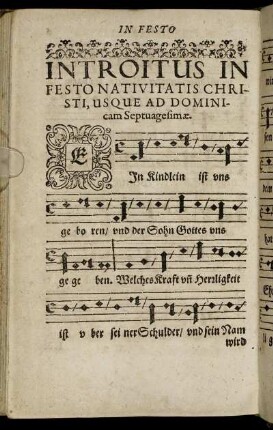 IN FESTO
INTROITUS IN
FESTO NATIVITATIS CHRI-
STI, USQUE AD DOMINI-
cam Septuagesimæ.
EJn Kindlein ist vns
ge bo ren/ vnd der Sohn Gottes vns
ge ge ben. Welches Kraft vñ Herrligkeit
ist v ber sei ner Schulder/ vnd sein Nam
wird